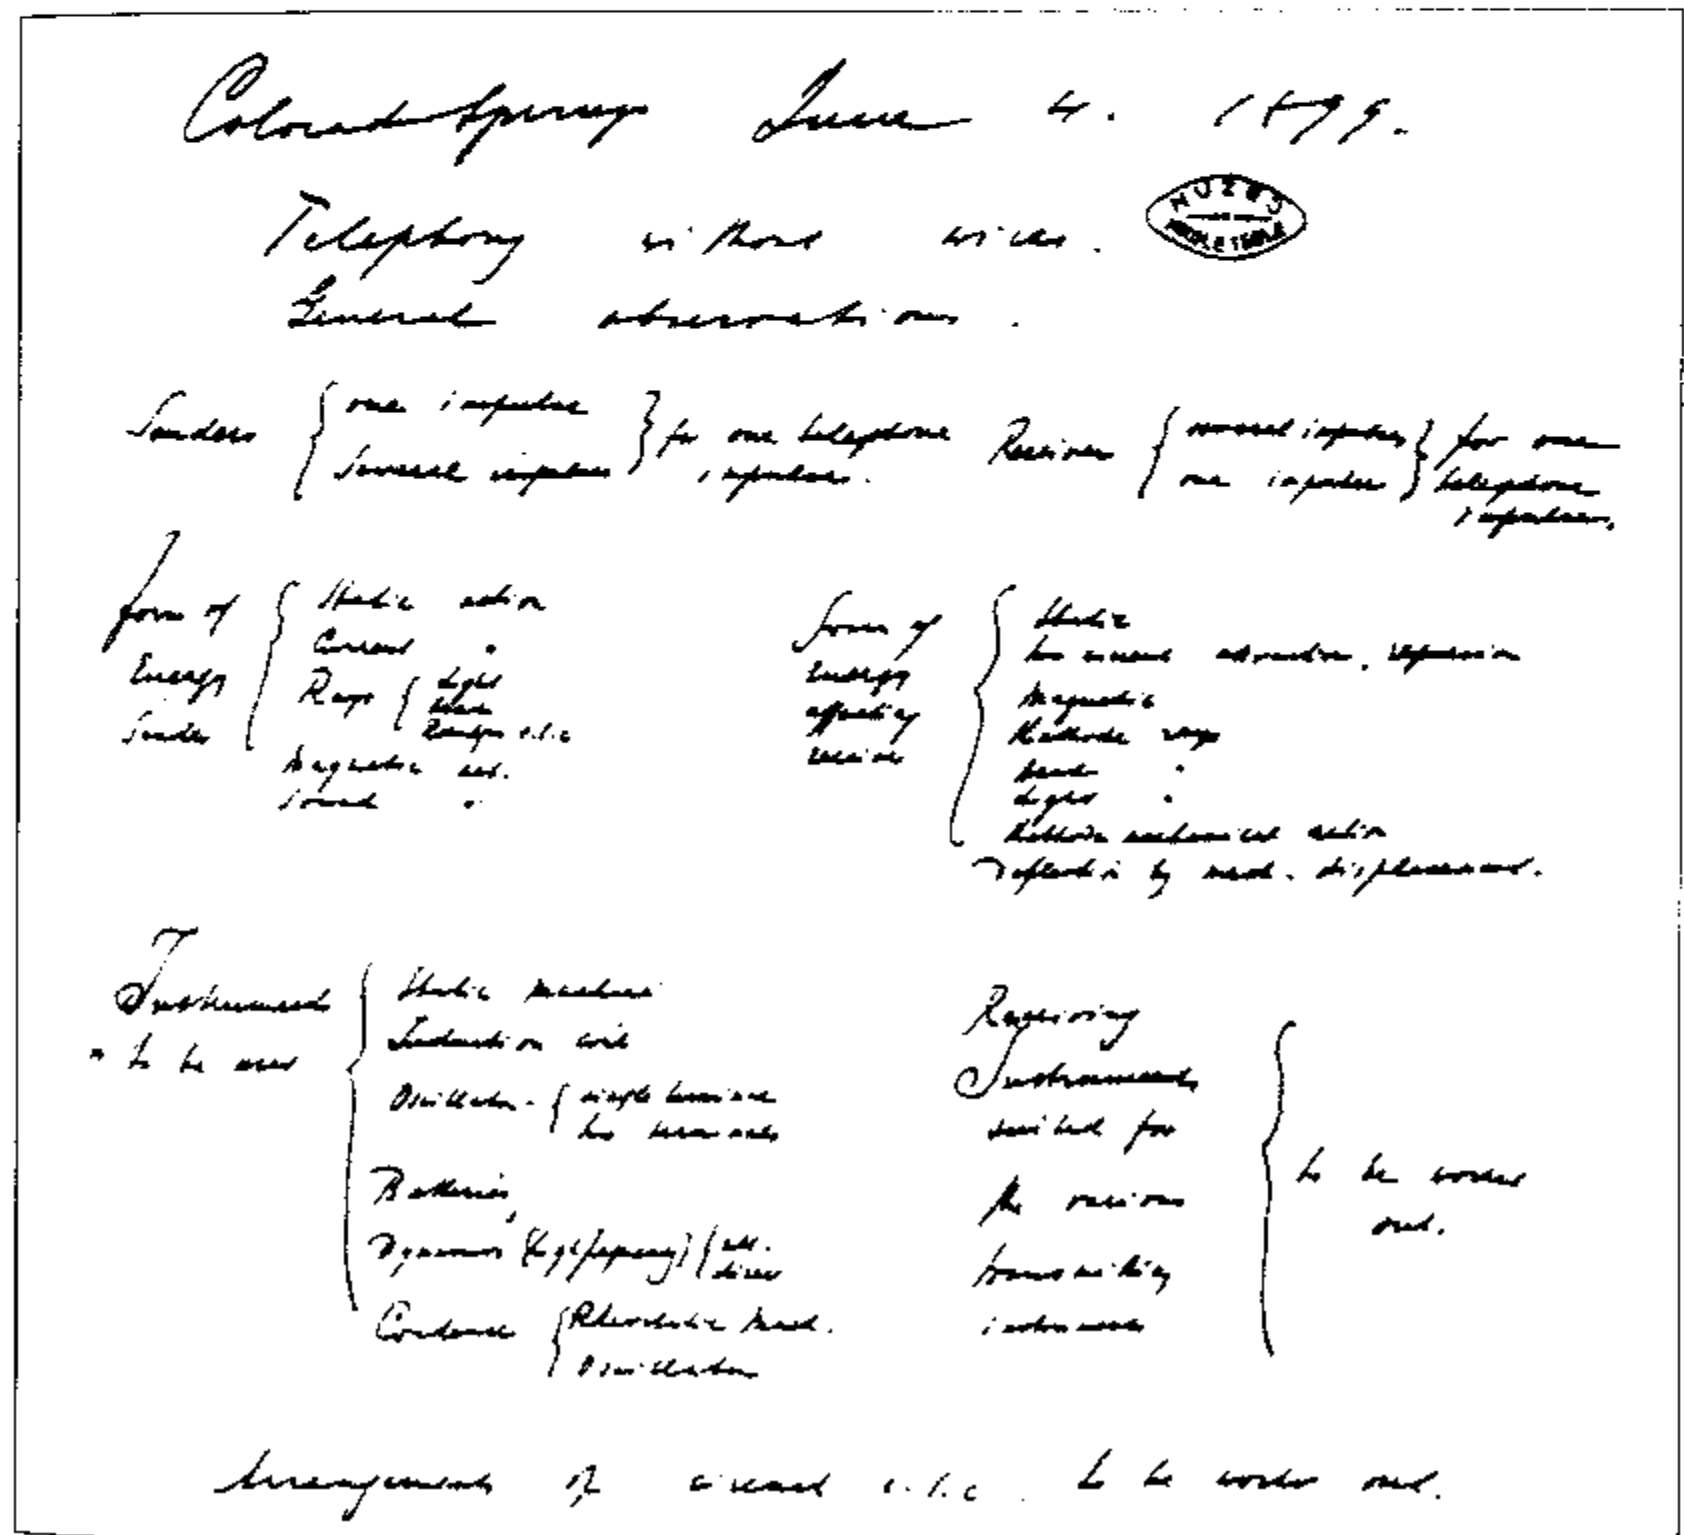 Colorado Springs June 4. 1899.
MUZEJ NIKOLE TESLE
Telephony without wires.
General observations.
Senders { one impulse
several impulses } for one telephone
impulse.
Receiver { several impulses
one impulse } for one
telephone
impulse.
form of
Energy
Sender
Static action
Current "
Rays { light
heat
Röntgen e.t.c
Magnetic act.
Sound "
form of
Energy
affecting
receiver
Static
two current attraction, repulsion
Magnetic
Kathode rays
heat "
light "
mechanical action
Deflection by mech. displacement.
Instruments
" to be used
Static machine
Induction coil
Oscillator - { single terminal
two terminals
Batteries,
Dynamos (high frequency) { alt.
direct
Condens. { Rheostatic Mach.
Oscillator
Receiving
Instruments
suited for
the various
transmitting
instruments
to be worked
out.
Arrangements of circuit e.t.c. to be worked out.